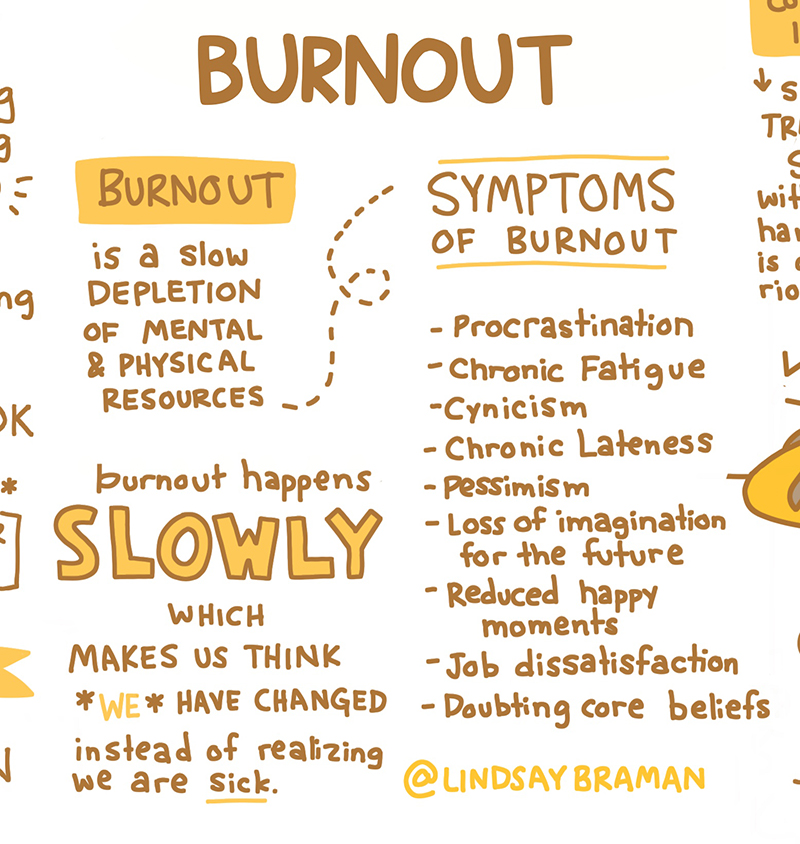 BURNOUT
BURNOUT
is a slow
DEPLETION
OF MENTAL
& PHYSICAL
RESOURCES
burnout happens
SLOWLY
WHICH
MAKES US THINK
*WE* HAVE CHANGED
instead of realizing
we are sick.
SYMPTOMS
OF BURNOUT
- Procrastination
- Chronic Fatigue
- Cynicism
- Chronic Lateness
- Pessimism
- Loss of imagination
for the future
- Reduced happy
moments
- Job dissatisfaction
- Doubting core beliefs
@LINDSAYBRAMAN
is